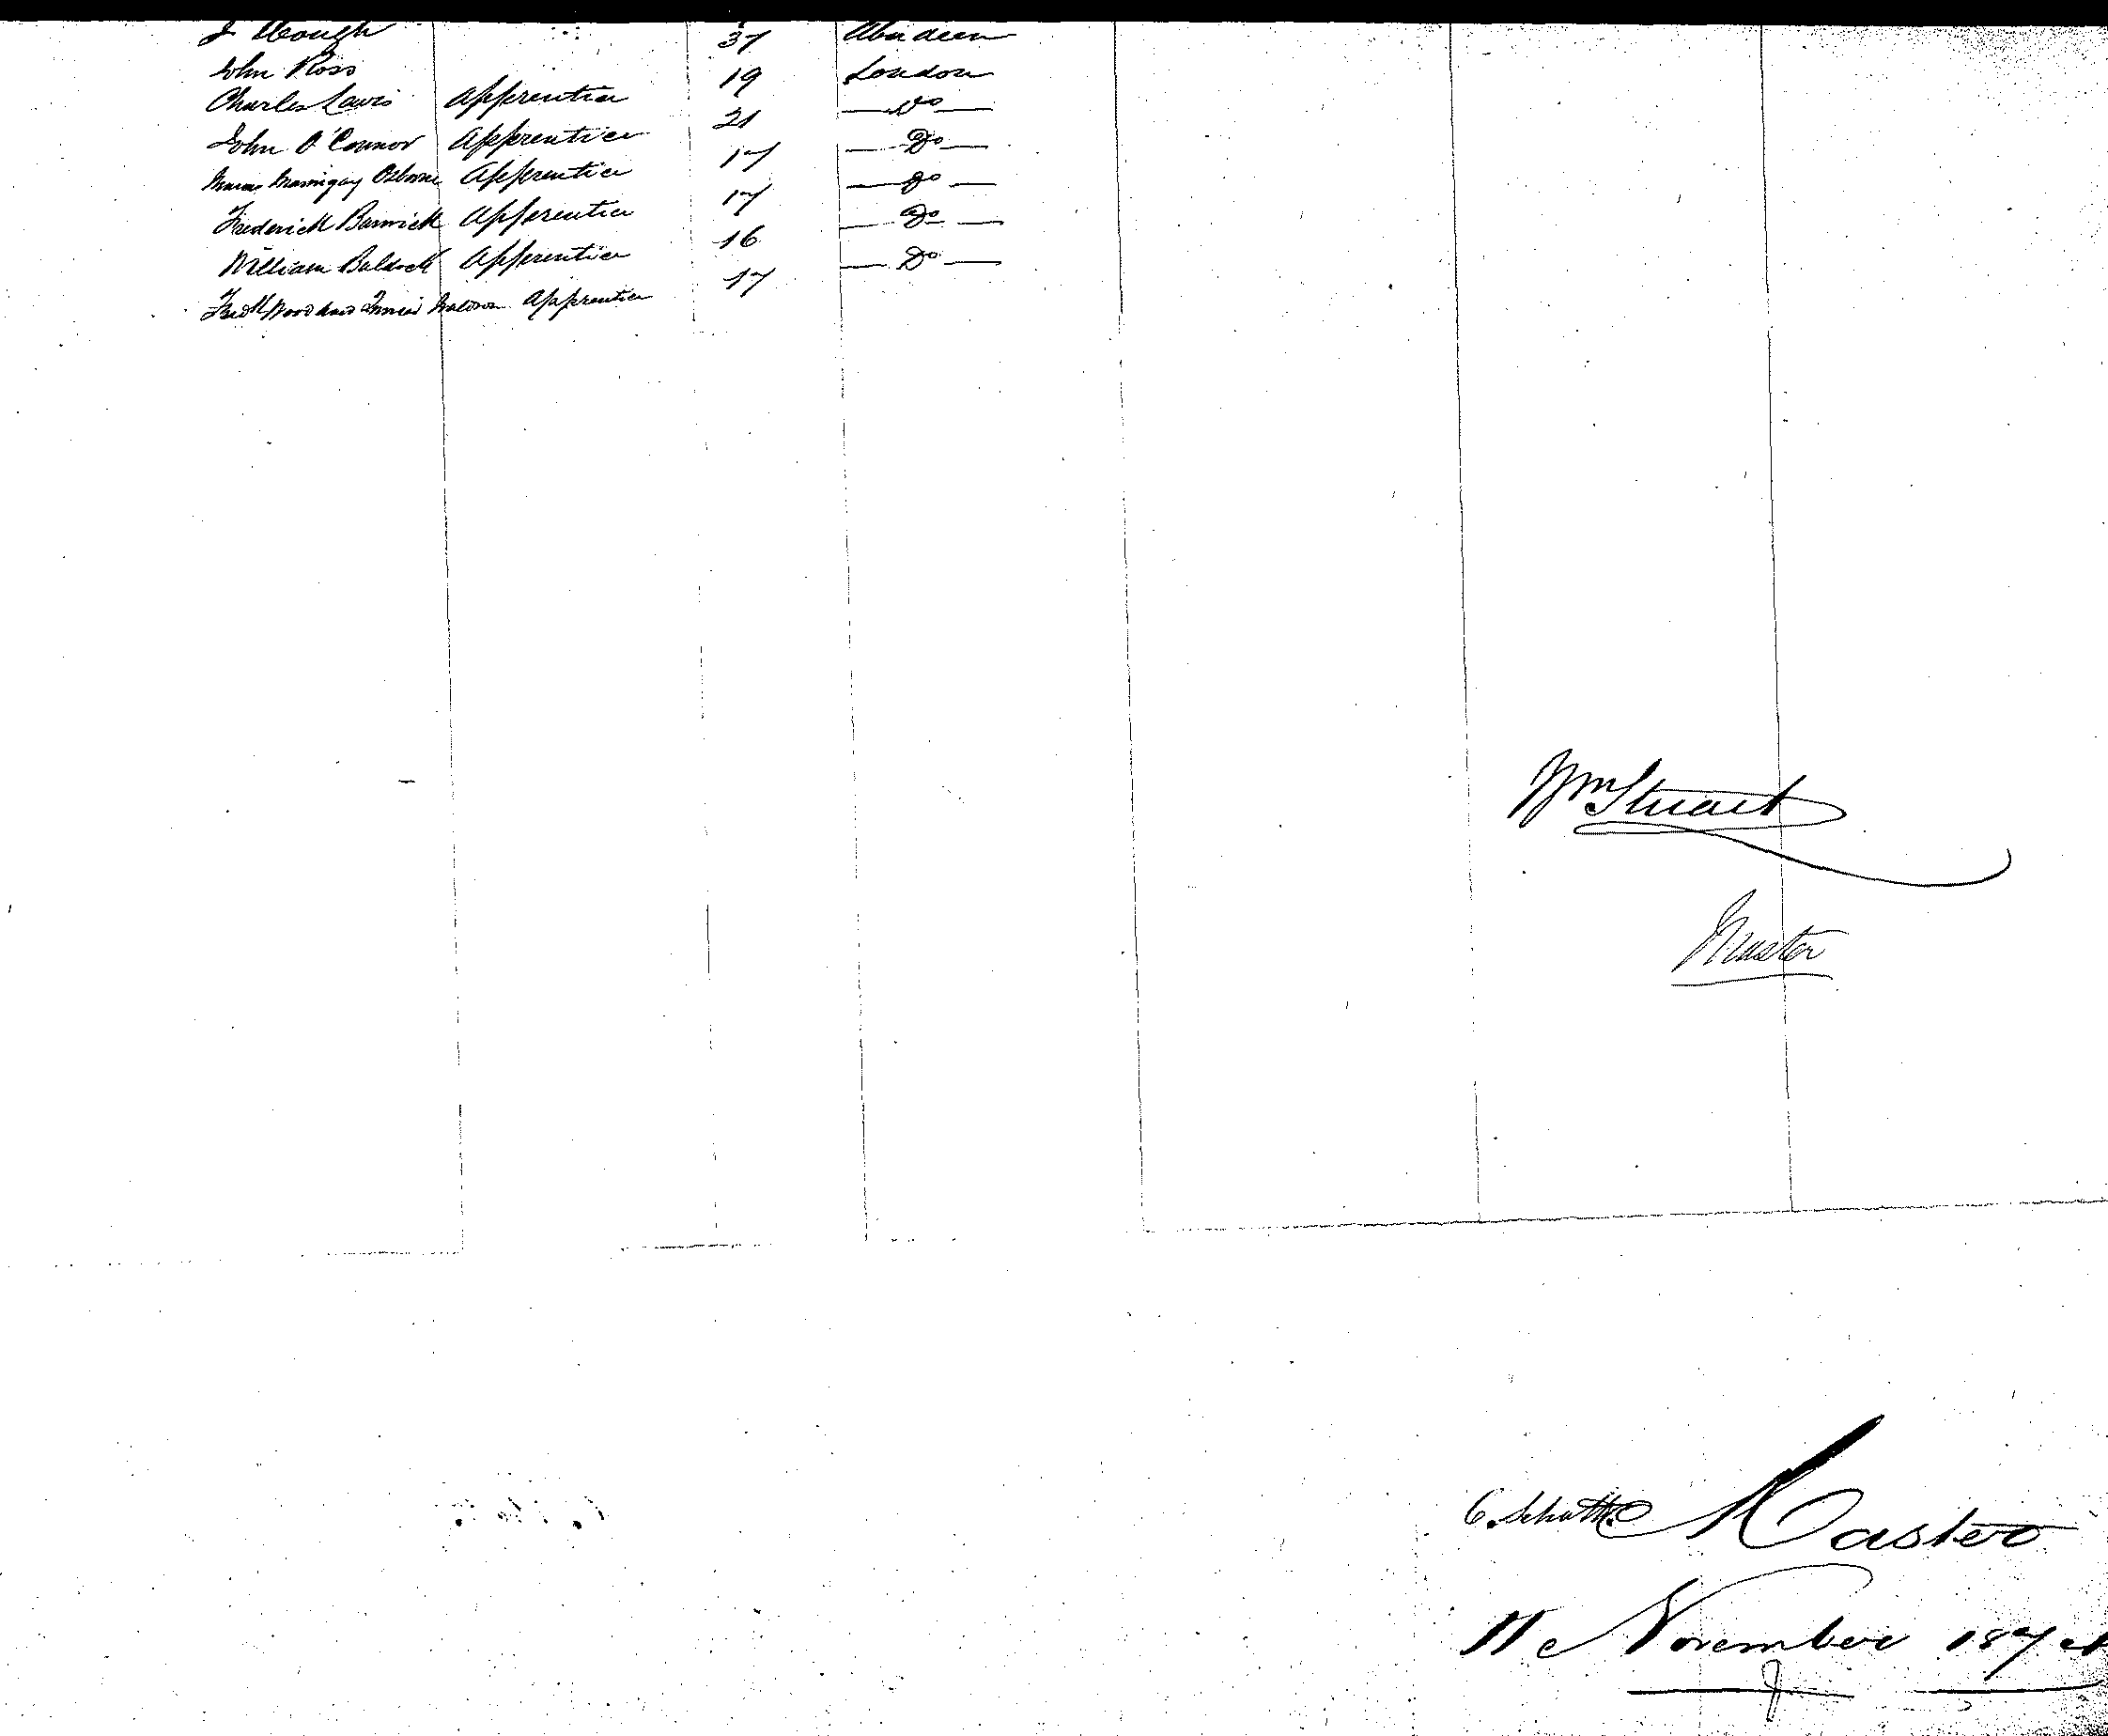 J Hough 37 Aberdeen
John Ross 19 London
Charles Lewis Apprentice 21 Do
John O'Connor Apprentice 17 Do
Osborne Apprentice 17 Do
Frederick Barwick Apprentice 16 Do
William Baldock Apprentice 17 Do
Fredk Apprentice
Wm Stuart
Master
C. Master
11 November 187